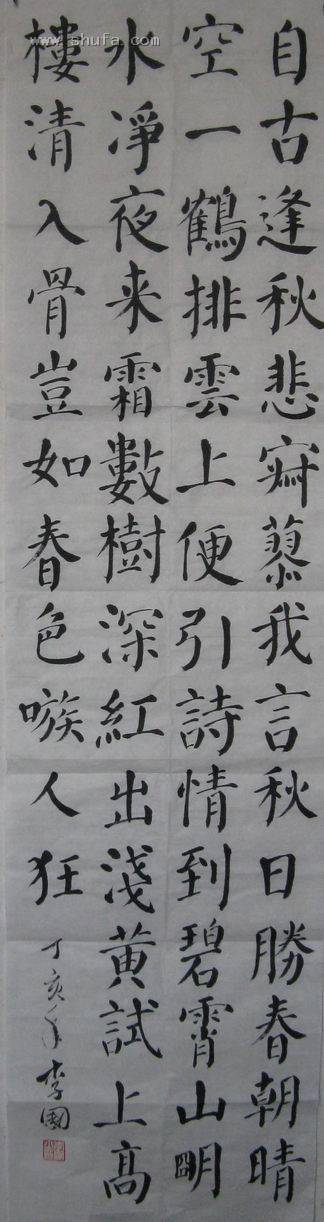 自古逢秋悲寂蓼我言秋日勝春朝晴
空一鶴排雲上便引詩情到碧霄山明
水凈夜来霜數樹深紅出淺黄試上高
樓清入骨豈如春色嗾人狂
丁亥年李國
www.shufa.com